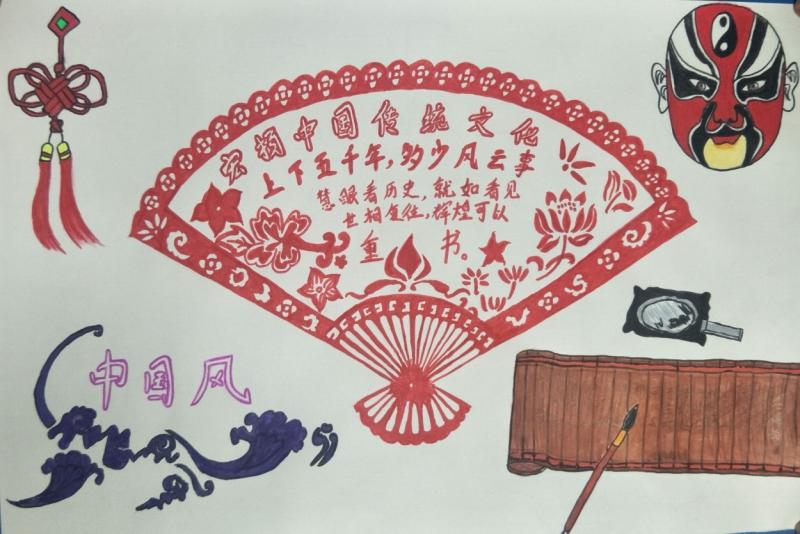 宏扬中国传统文化
上下五千年,多少风云事
慧眼看历史,就如看见
世相往,辉煌可以
重书。
中国风